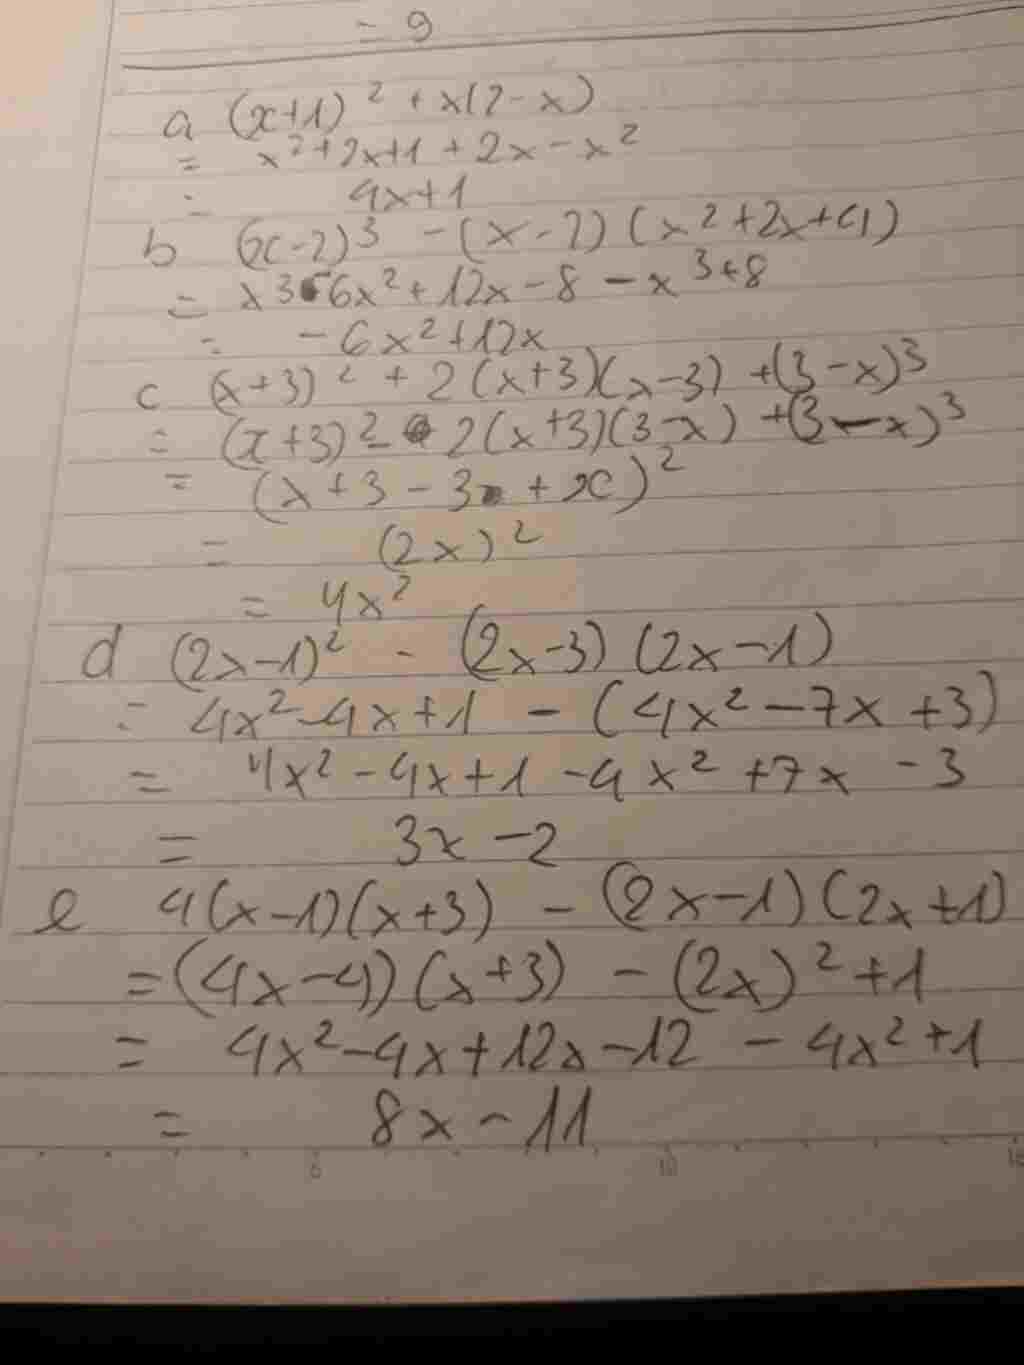 = 9
a (x+1)² + x(2-x)
= x²+2x+1 + 2x-x²
= 4x+1
b (x-2)³ - (x-2)(x²+2x+4)
= x³-6x²+12x-8-x³+8
= -6x²+12x
c (x+3)² + 2(x+3)(x-3) +(3-x)³
= (x+3)² - 2(x+3)(3-x) +(3-x)³
= (x+3-3+x)²
= (2x)²
= 4x²
d (2x-1)² - (2x-3)(2x-1)
= 4x²-4x+1 - (4x²-7x+3)
= 4x²-4x+1-4x²+7x-3
= 3x-2
e 4(x-1)(x+3) - (2x-1)(2x+1)
=(4x-4)(x+3) - (2x)²+1
= 4x²-4x+12x-12 - 4x²+1
= 8x-11